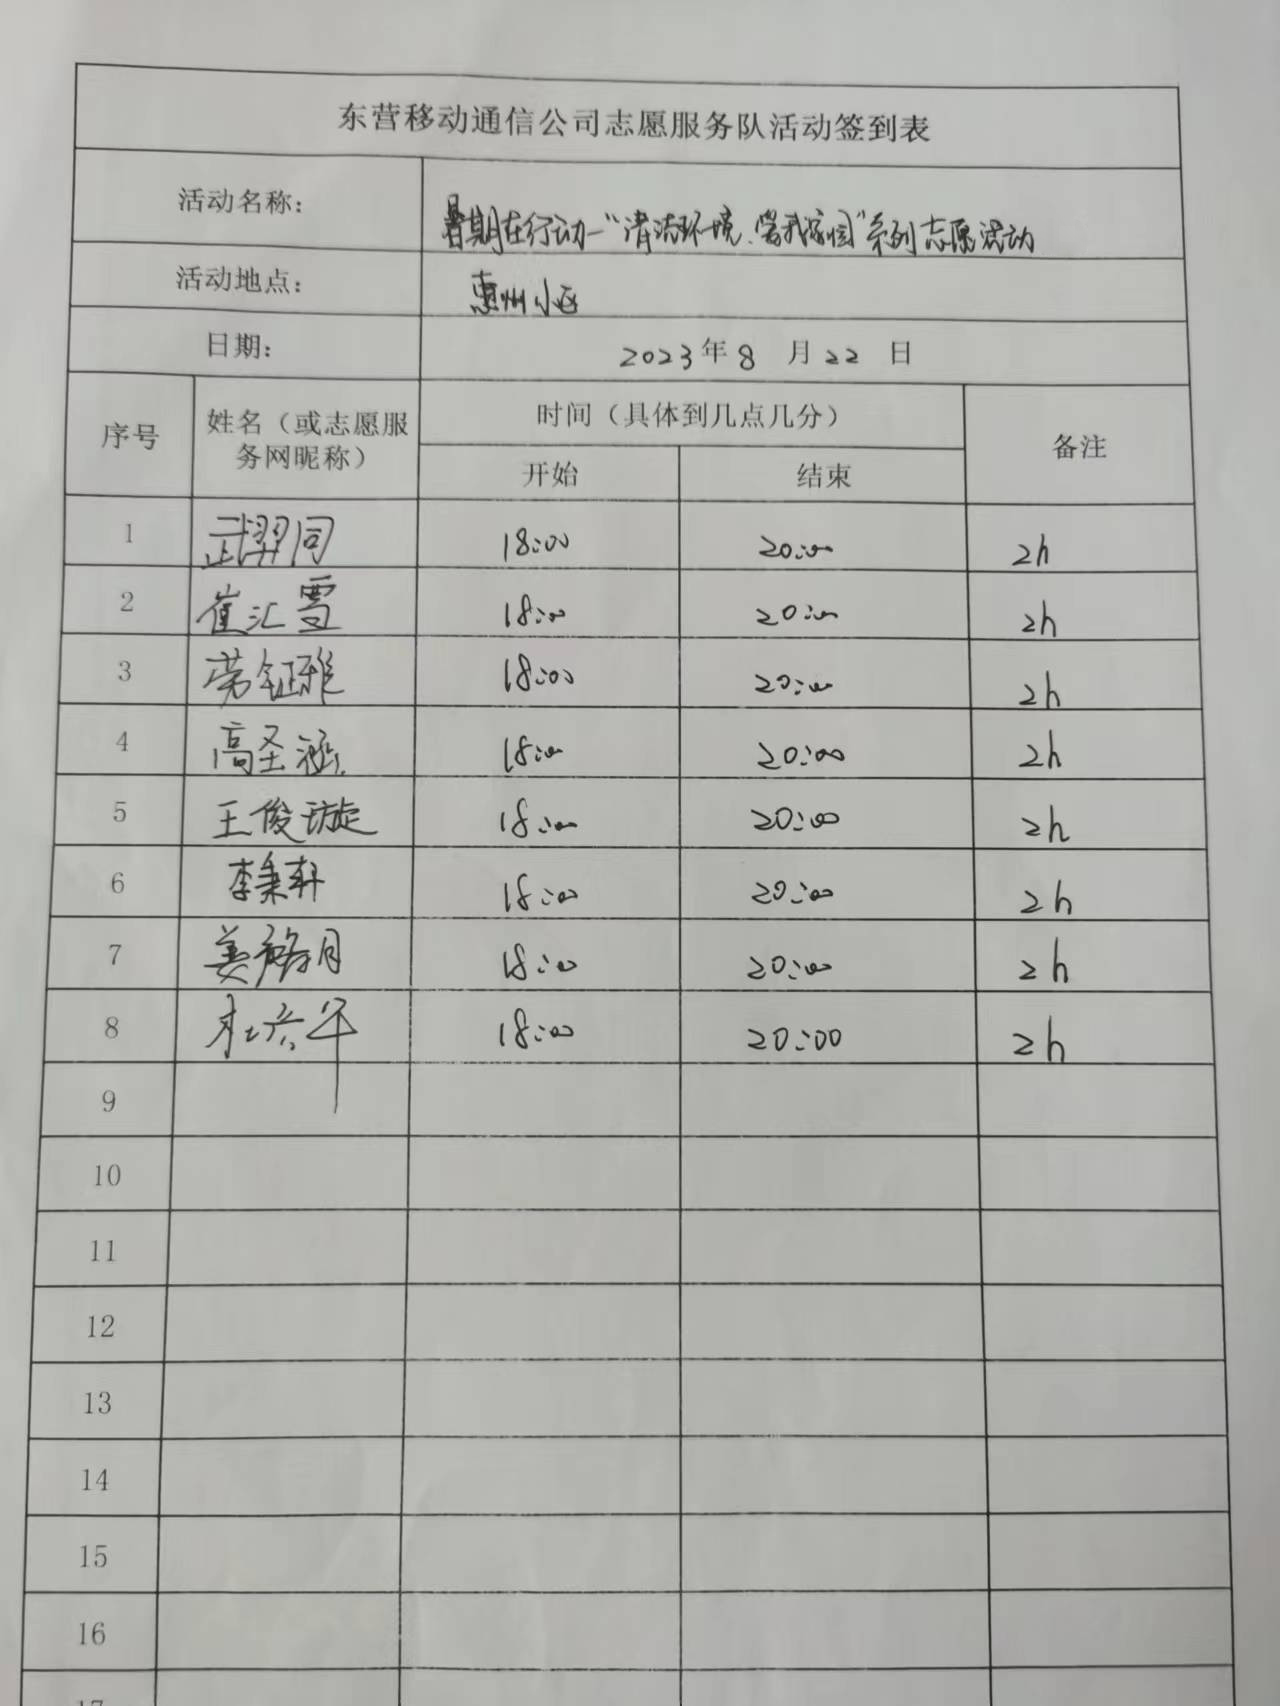 东营移动通信公司志愿服务队活动签到表
活动名称： 暑期在行动—“清洁环境、爱我家园”系列志愿活动
活动地点： 惠州小区
日期： 2023年8月22日
序号 姓名（或志愿服务网昵称） 时间（具体到几点几分） 备注
开始 结束
1 武羿同 18:00 20:00 2h
2 崔汇雪 18:00 20:00 2h
3 劳钲雅 18:00 20:00 2h
4 高圣涵 18:00 20:00 2h
5 王俊璇 18:00 20:00 2h
6 李秉轩 18:00 20:00 2h
7 18:00 20:00 2h
8 18:00 20:00 2h
9
10
11
12
13
14
15
16
17